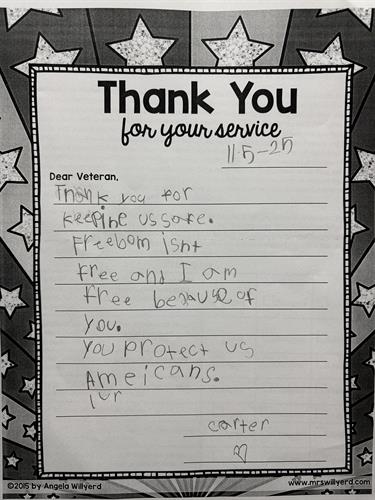 Thank You
for your service
11-5-25
Dear Veteran,
Thank you for
keeping us safe.
Freebom isnt
free and I am
free because of
you.
you protect us
Ameicans.
lur
carter
©2015 by Angela Willyerd
www.mrswillyerd.com